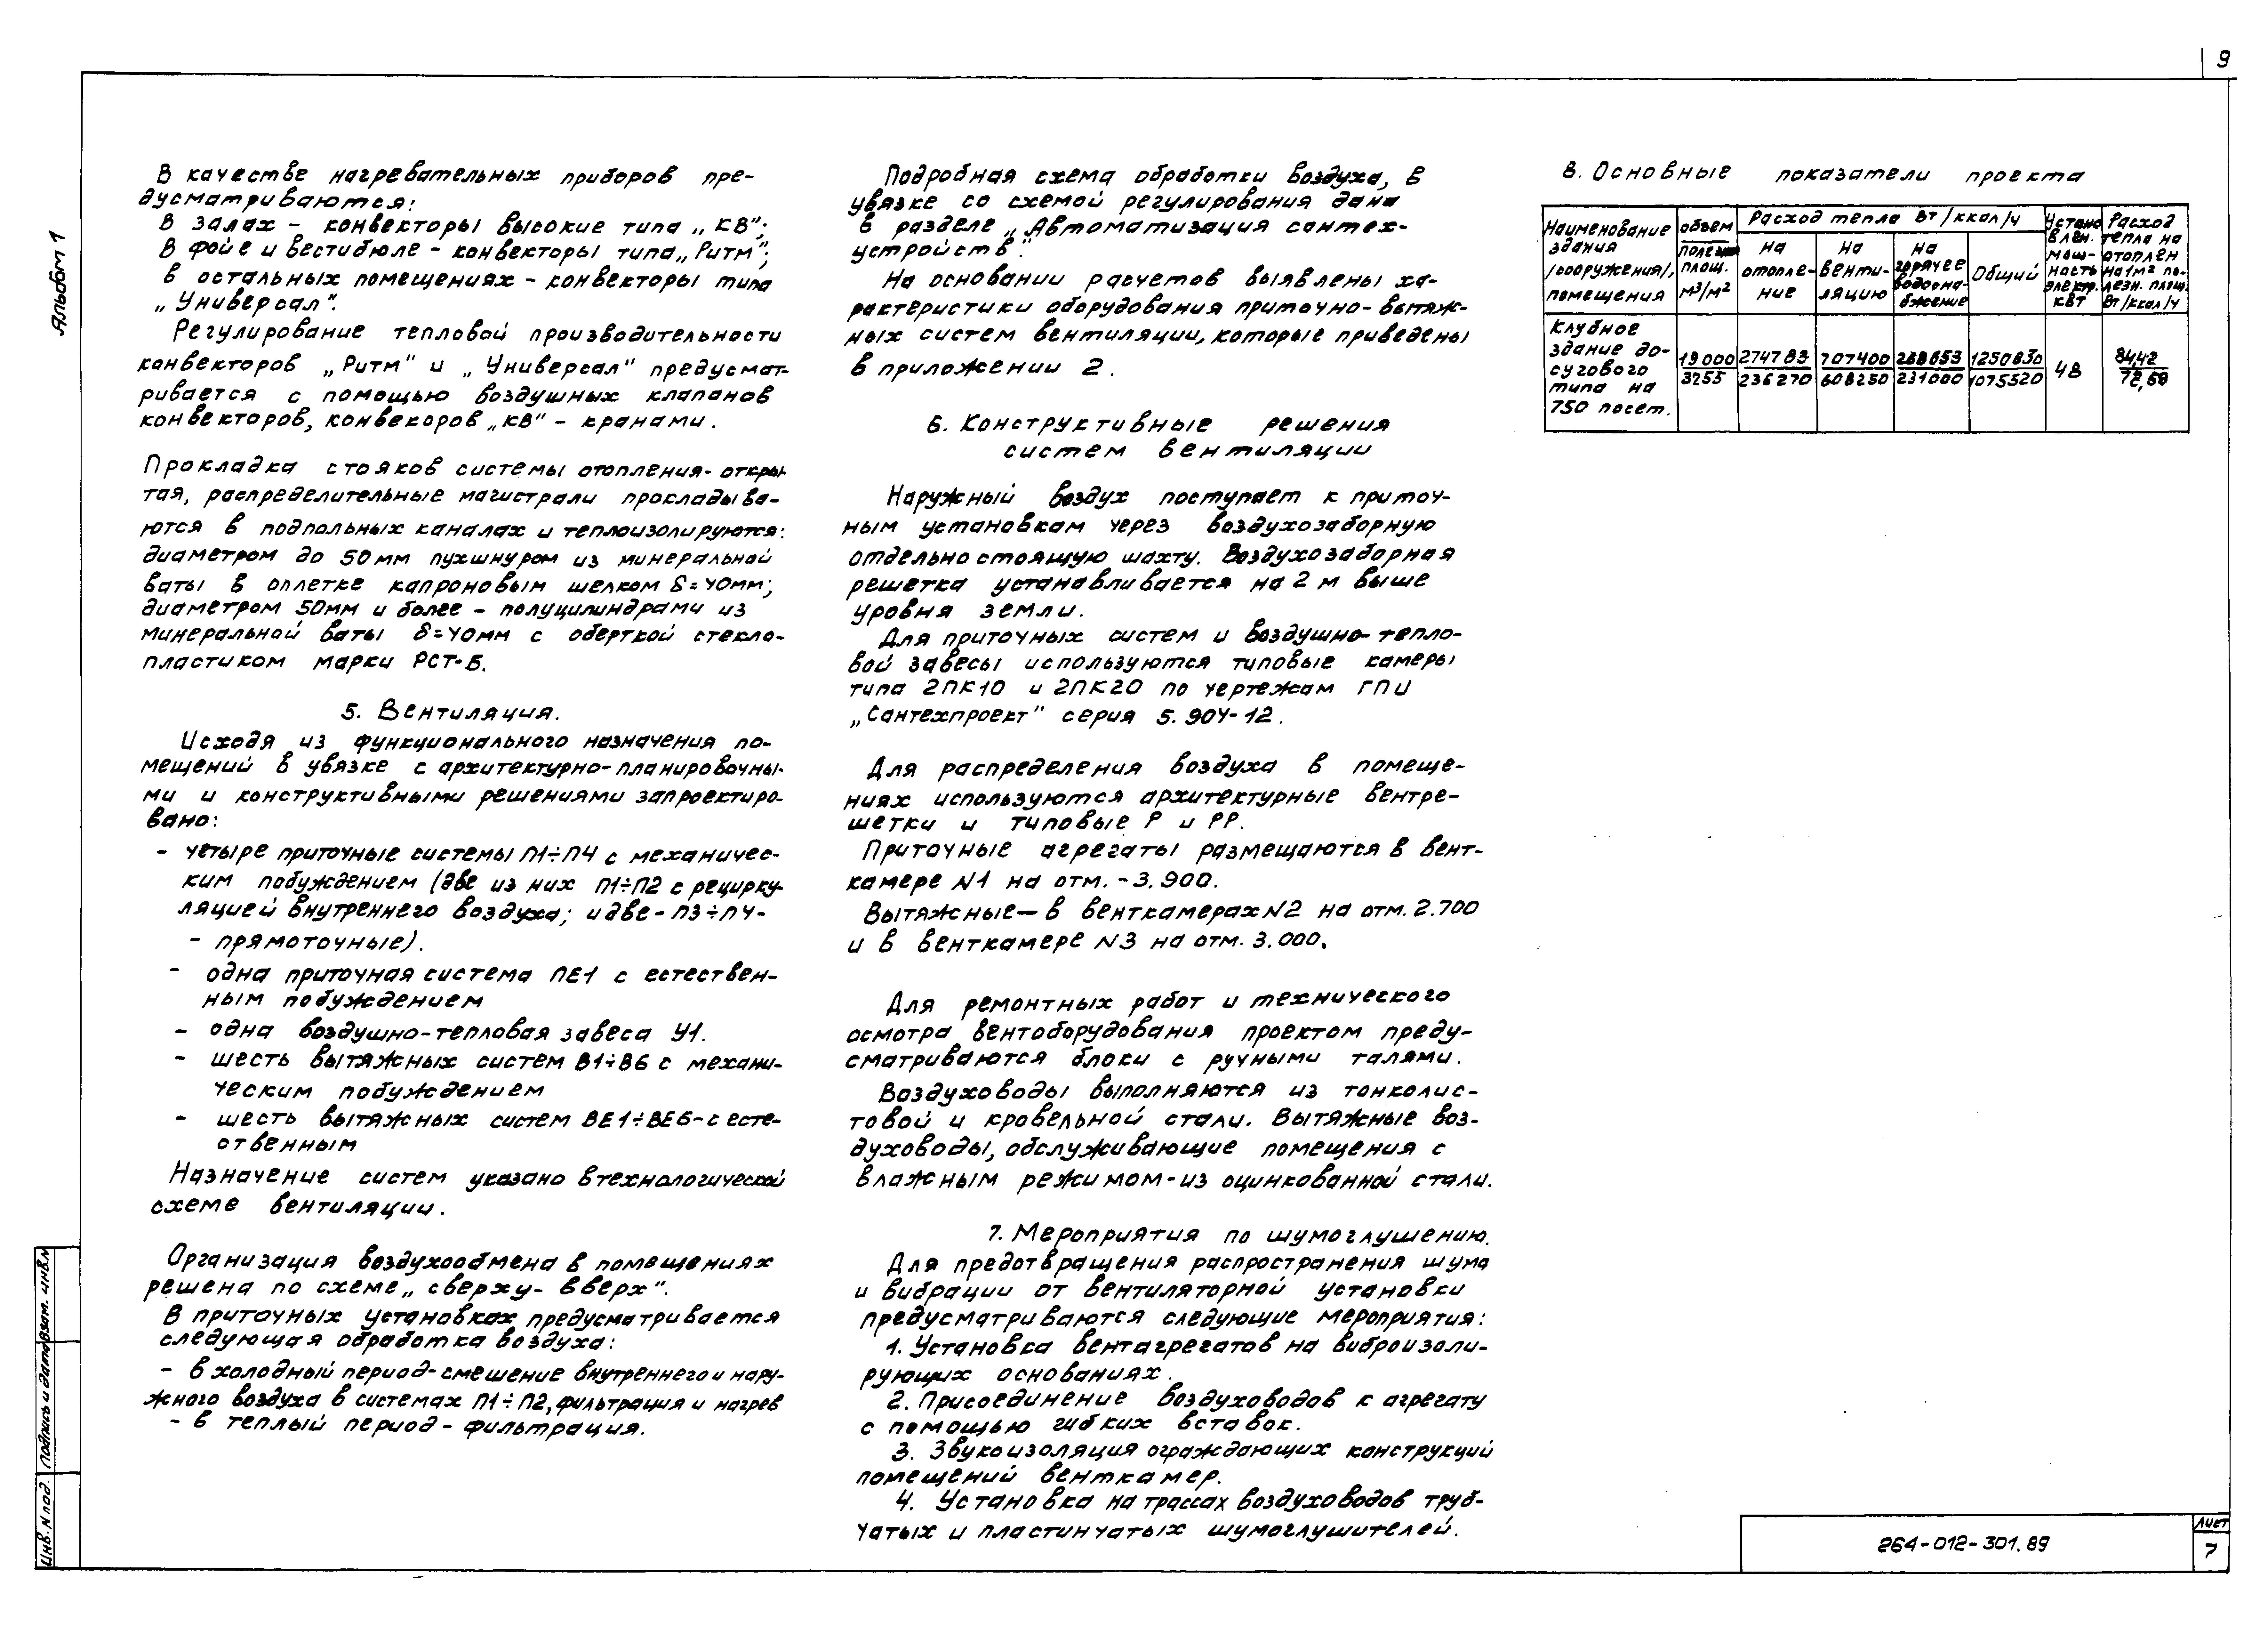 9
Альбом 1
В качестве нагревательных приборов пре-
дусматриваются:
в залах - конвекторы высокие типа „КВ";
в фойе и вестибюле - конвекторы типа „Ритм";
в остальных помещениях - конвекторы типа
„Универсал".
Регулирование тепловой производительности
конвекторов „Ритм" и „Универсал" предусмат-
ривается с помощью воздушных клапанов
конвекторов, конвекоров „КВ" - кранами.
Прокладка стояков системы отопления- откры-
тая, распределительные магистрали прокладыва-
ются в подпольных каналах и теплоизолируются:
диаметром до 50мм пухшнуром из минеральной
ваты в оплетке капроновым шелком δ=40мм;
диаметром 50мм и более - полуцилиндрами из
минеральной ваты δ=40мм с оберткой стекло-
пластиком марки РСТ-Б.
5. Вентиляция.
Исходя из функционального назначения по-
мещений в увязке с архитектурно-планировочны-
ми и конструктивными решениями запроектиро-
вано:
- четыре приточные системы П1÷П4 с механичес-
ким побуждением (две из них П1÷П2 с рецирку-
ляцией внутреннего воздуха; и две - П3÷П4-
- прямоточные).
- одна приточная система ПЕ1 с естествен-
ным побуждением
- одна воздушно-тепловая завеса У1.
- шесть вытяжных систем В1÷В6 с механи-
ческим побуждением
- шесть вытяжных систем ВЕ1÷ВЕ6-с есте-
ственным
Назначение систем указано в технологической
схеме вентиляции.
Организация воздухообмена в помещениях
решена по схеме „сверху- вверх".
В приточных установках предусматривается
следующая обработка воздуха:
- в холодный период-смешение внутреннего и нару-
жного воздуха в системах П1÷П2, фильтрация и нагрев
- в теплый период - фильтрация.
Подробная схема обработки воздуха, в
увязке со схемой регулирования дана
в разделе „Автоматизация сантех-
устройств".
На основании расчетов выявлены ха-
рактеристики оборудования приточно-вытяж-
ных систем вентиляции, которые приведены
в приложении 2.
6. Конструктивные решения
систем вентиляции
Наружный воздух поступает к приточ-
ным установкам через воздухозаборную
отдельно стоящую шахту. Воздухозаборная
решетка устанавливается на 2 м выше
уровня земли.
Для приточных систем и воздушно-тепло-
вой завесы используются типовые камеры
типа 2ПК10 и 2ПК20 по чертежам ГПИ
„Сантехпроект" серия 5.904-12.
Для распределения воздуха в помеще-
ниях используются архитектурные вентре-
шетки и типовые Р и РР.
Приточные агрегаты размещаются в вент-
камере N1 на отм. -3.900.
Вытяжные - в венткамерах N2 на отм. 2.700
и в венткамере N3 на отм. 3.000.
Для ремонтных работ и технического
осмотра вентоборудования проектом преду-
сматриваются блоки с ручными талями.
Воздуховоды выполняются из тонколис-
товой и кровельной стали. Вытяжные воз-
духоводы, обслуживающие помещения с
влажным режимом-из оцинкованной стали.
7. Мероприятия по шумоглушению.
Для предотвращения распространения шума
и вибрации от вентиляторной установки
предусматриваются следующие мероприятия:
1. Установка вентагрегатов на виброизоли-
рующих основаниях.
2. Присоединение воздуховодов к агрегату
с помощью гибких вставок.
3. Звукоизоляция ограждающих конструкций
помещений венткамер.
4. Установка на трассах воздуховодов труб-
чатых и пластинчатых шумоглушителей.
8. Основные показатели проекта
Наименование здания /сооружения/, помещения
объем полезн площ. м3/м2
Расход тепла Вт/ккал/ч
на отопле- ние
на венти- ляцию
на горячее водосна- бжение
Общий
Устано влен. мощ- ность электр. кВт
Расход тепла на отоплен на 1м2 по- лезн. площ. Вт/ккал/ч
Клубное здание до- сугового типа на 750 посет.
19000 274783 707400 268653 1250830 48 84,42
3255 236270 608250 231000 1075520 72,60
Инв.N под. Подпись и дата Взам. инв.N
264-012-301.89
Лист
7